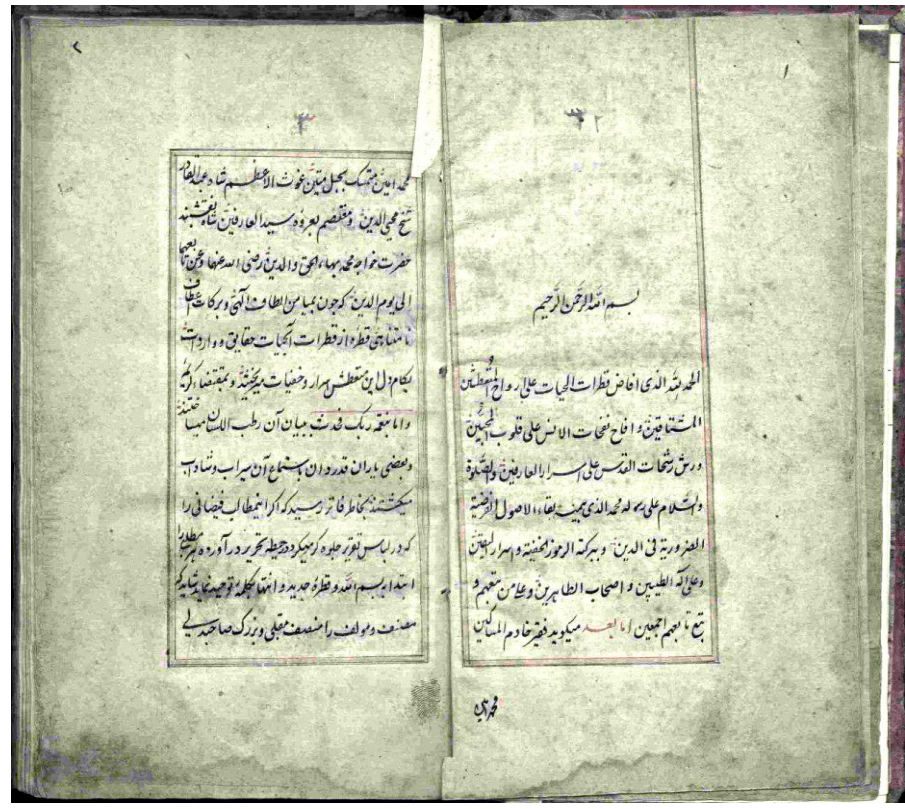 بسم الله الرحمن الرحيم
الحمد لله الذى افاض قطرات الحيات على ارواح المتعطشين
المشتاقين و افاح نفحات الانس على قلوب المحبين
ورش رشحات القدس على اسرار العارفين والصلوة
والسلام على محمد الذى بقاء الاصول الفرضية
الضرورية فى الدين وببركته الرموز الخفية واسرار اليقين
وعلى اله الطيبين و اصحاب الطاهرين و على من تبعهم و
تبع تابعهم اجمعين اما بعد ميكويد فقير خادم المساكين
محمد امين
محمد امين متمسك بحبل متين غوث الاعظم شاه عبدالقادر
شيخ محيى الدين و معتصم بعروه سيد العارفين شاه نقشبند
حضرت خواجه محمد بهاء الحق والدين رضى الله عنهما وعن تابعهما
الى يوم الدين كه چون بميامن الطاف الهى و بركات اعطاف
نامتناهى قطره از قطرات الحيات حقايق و واردات
بكام دل اين متعطش اسرار و خفيات ميريختند و بمقتضاء كريمه
واما بنعمة ربك فحدث ببيان آن رطب اللسان ميساختند
و بعضى ياران قدردان باستماع آن سيراب و شاداب
ميكشتند بخاطر فاتر رسيد كه اكر اينمطالب فيضانى را
كه در لباس تقرير جلوه كر ميكردد در حيطه تحرير در آورده
ابتدا ببسم الله و قطره جديد و انتها بكلمه توحيد نمايد شايد كه
مصنف و مولف را منصف مقبلى و بزرك صاحبدلى